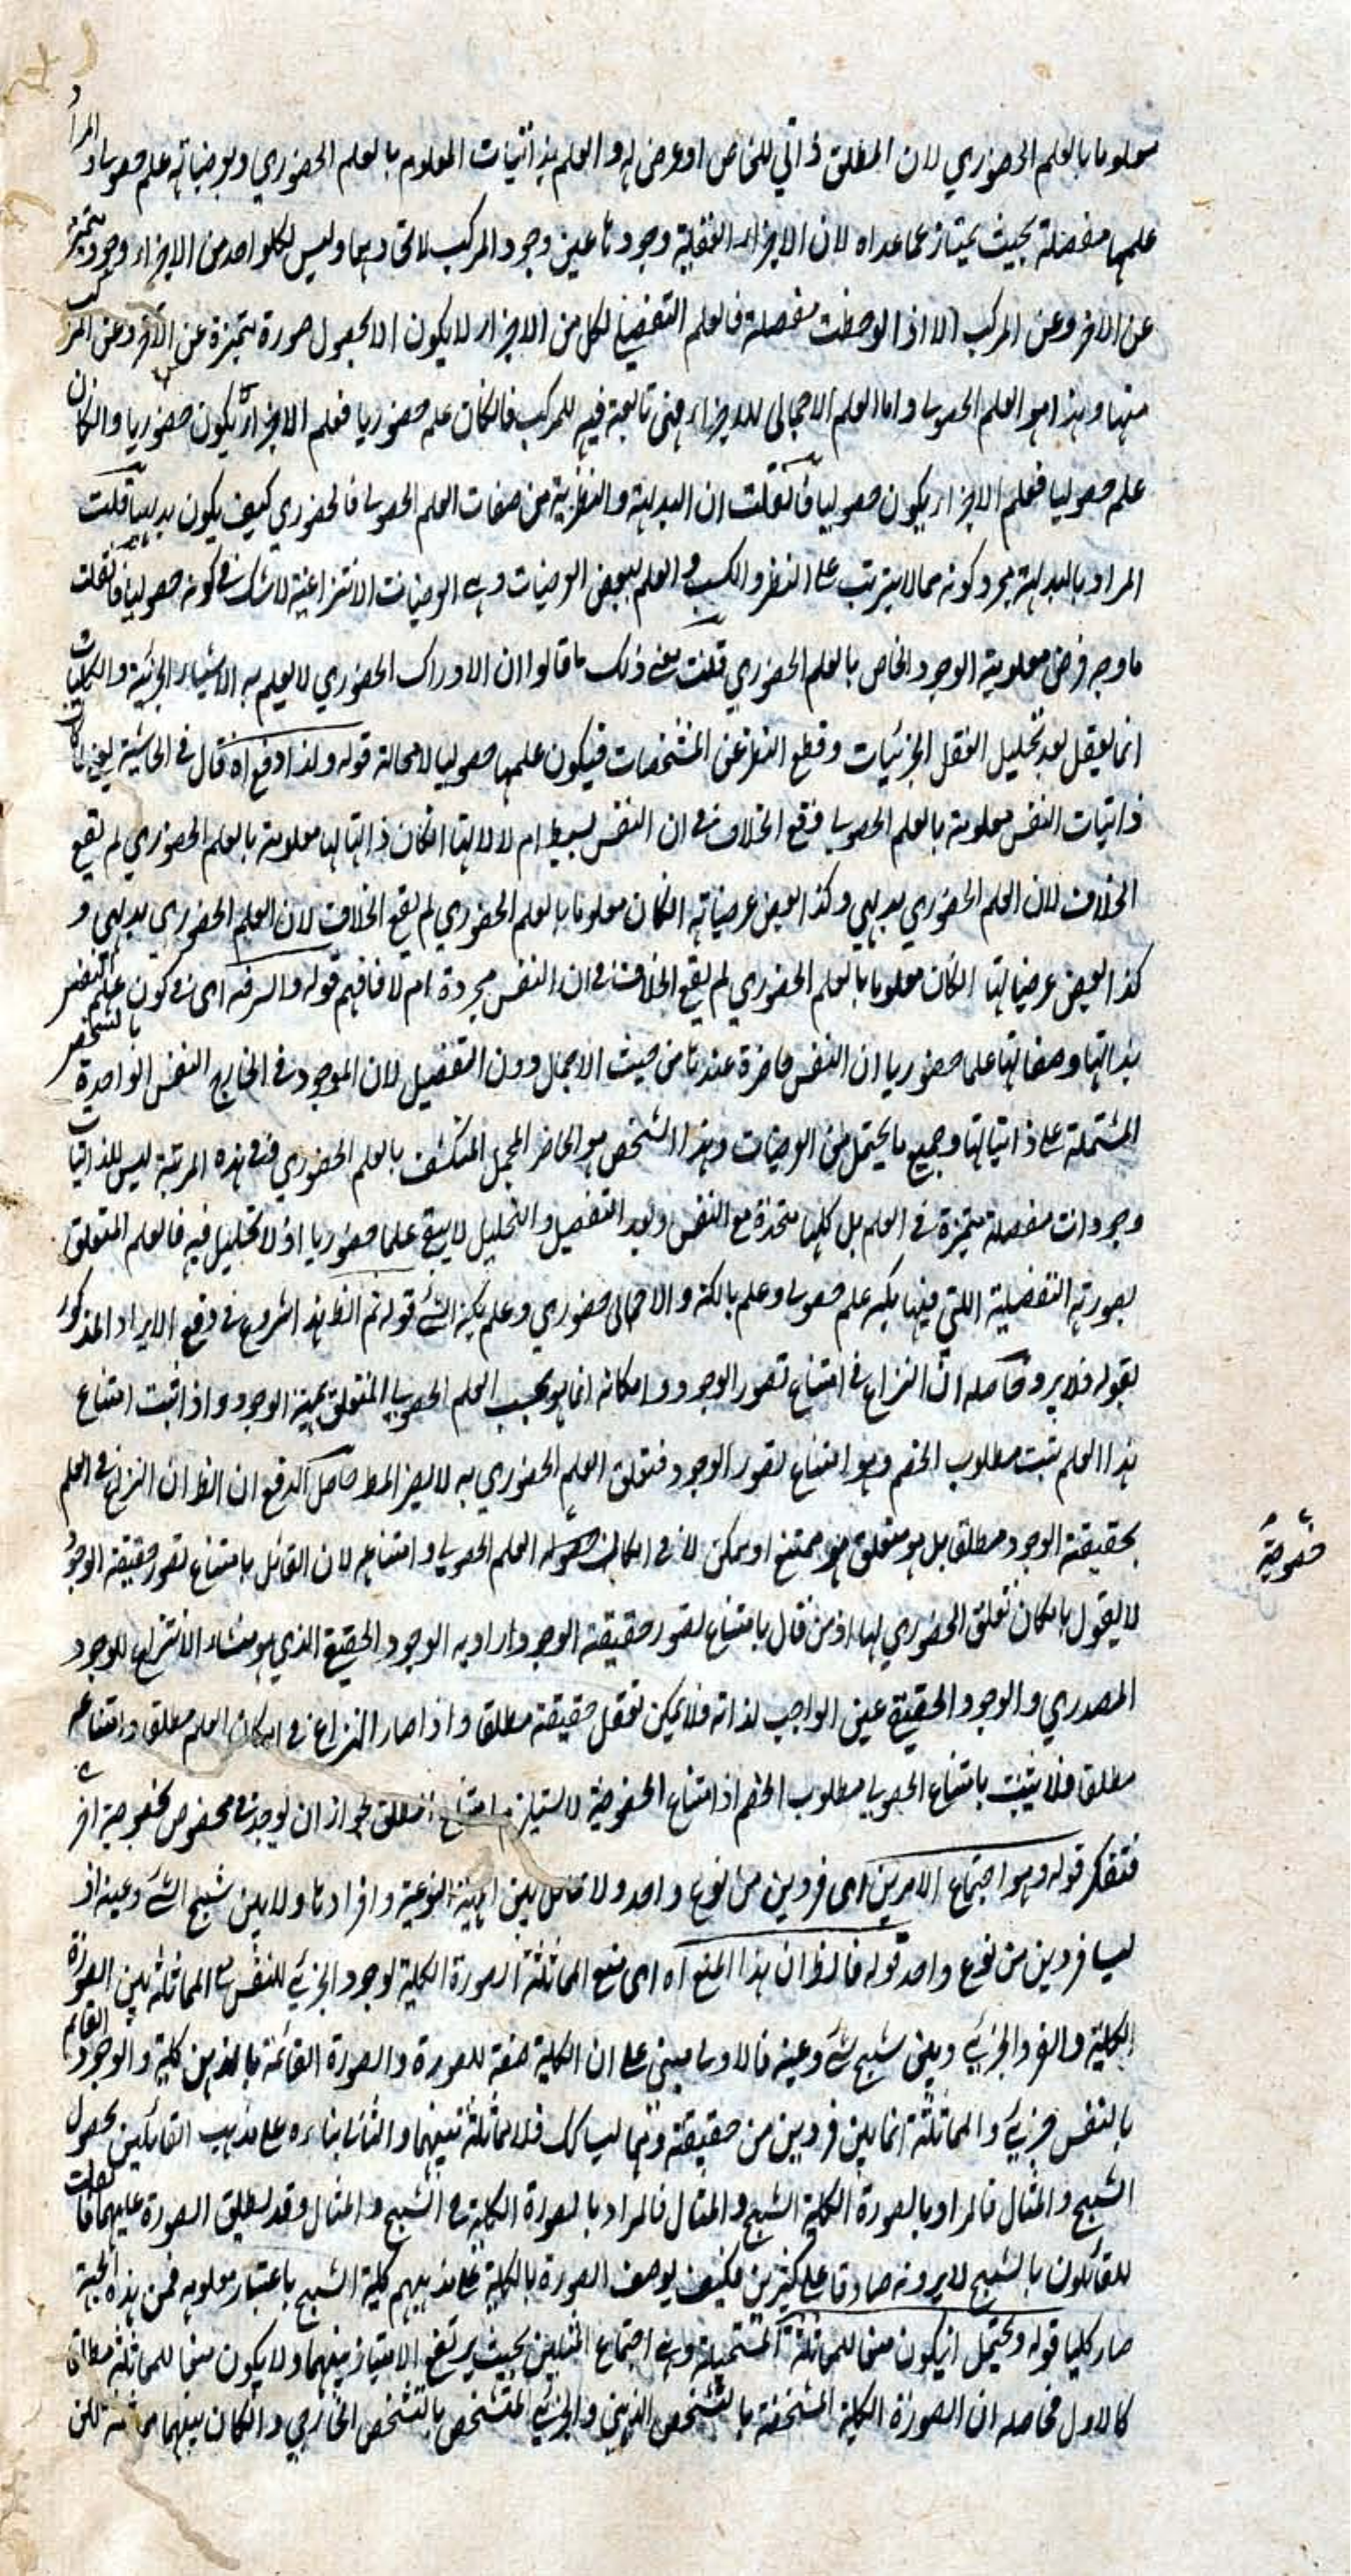 معلوما بالعلم الحضوري لان المطلق ذاتي للخاص او عرض له والعلم بذاتيات المعلوم بالعلم الحضوري وبعرضياته علم حصولي اذ المراد
علمها مفصلة بحيث يمتاز عما عداه لان الاجزاء العقلية وجودها عين وجود المركب لاتحادهما وليس لكل واحد من الاجزاء وجود متميز
عن الآخر وعن المركب الا اذا لوحظت مفصلة فالعلم التفصيلي لكل من الاجزاء لا يكون الا بحصول صورة متميزة عن الآخر وعن المركب
منها وهذا هو العلم الحصولي واما العلم الاجمالي للاجزاء فهي تابعة فيه للمركب فان كان علمه حضوريا فعلم الاجزاء يكون حضوريا وان كان
علمه حصوليا فعلم الاجزاء يكون حصوليا فان قلت ان البداهة والنظرية من صفات العلم الحصولي فالحضوري كيف يكون بديهيا قلت
المراد بالبداهة مجرد كونه مما لا يترتب على النظر والكسب والعلم ببعض العرضيات وهي العرضيات الانتزاعية لا شك في كونه حصوليا فان قلت
ما وجه فرض معلومية الوجود الخاص بالعلم الحضوري قلت يعني ذلك ما قالوا ان الادراك الحضوري لا يعلم به الا الاشياء الجزئية والكليات
انما يعقل بعد تحليل العقل الجزئيات وقطع النظر عن المشخصات فيكون علمها حصوليا لا محالة قوله ولذا وقع اه قال في الحاشية يعني لما كان
ذاتيات النفس معلومة بالعلم الحصولي وقع الخلاف في ان النفس بسيط ام لا لانها ان كان ذاتياتها معلومة بالعلم الحضوري لم يقع
الخلاف لان العلم الحضوري بديهي وكذا بعض عرضياته ان كان معلوما بالعلم الحضوري لم يقع الخلاف لان العلم الحضوري بديهي و
كذا بعض عرضياتها ان كان معلوما بالعلم الحضوري لم يقع الخلاف في ان النفس مجردة ام لا فافهم قوله والسر فيه اي في كون علم النفس
بذاتها وصفاتها علما حضوريا ان النفس حاضرة عندنا من حيث الاجمال دون التفصيل لان الموجود في الخارج النفس الواحدة بالشخص
المشتملة على ذاتياتها وجميع ما يحتمل من العرضيات وهذا الشخص هو الحاضر المجمل المنكشف بالعلم الحضوري ففي هذه المرتبة ليس للذاتيات
وجودات مفصلة متميزة في العلم بل كلها متحدة مع النفس وبعد التفصيل والتحليل لا يبقى علما حضوريا اذ لا تحليل فيه فالعلم المتعلق
بصورته التفصيلية اللتي فيها بكنه علم حصولي وعلم بالكنه والاجمالي حضوري وعلم بكنه الشئ قوله ثم الظ هذا شروع في دفع الايراد المذكور
بقوله فلا يرد وحاصله ان النزاع في امتناع تصور الوجود وامكانه انما هو بحسب العلم الحصولي المتعلق بكنه الوجود واذا ثبت امتناع
هذا العلم ثبت مطلوب الخصم وهو امتناع تصور الوجود فتعلق العلم الحضوري به لا يضر المط حاصل الدفع ان الظ ان النزاع في العلم
بحقيقة الوجود مطلقا بل هو متعلق هو ممتنع او ممكن لا في امكان حصوله العلم الحصولي وامتناعه لان القائل بامتناع تصور حقيقة الوجود
لا يقول بامكان تعلق الحضوري لها اذ من قال بامتناع تصور حقيقة الوجود اراد به الوجود الحقيقي الذي هو منشاء الانتزاع للوجود
المصدري والوجود الحقيقي عين الواجب لذاته فلا يمكن تعقل حقيقته مطلقا واذا صار النزاع في امكان العلم مطلقا وامتناعه
مطلقا فلا يثبت بامتناع الحصولي مطلوب الخصم اذ امتناع الخصوصية لا يستلزم امتناع المطلق لجواز ان يوجد في مخصوص بخصوصية اخر
خصوصية
فتفكر قوله وهو اجتماع الامرين اي فردين من نوع واحد ولا تماثل بين المهية النوعية وافرادها ولا بين شبح الشئ وعينه اذ
ليسا فردين من نوع واحد قوله فالظ ان هذا المنع اه اي منع المماثلة الصورة الكلية لوجود الجزئي للنفس هي المماثلة بين الصورة
الكلية والفرد الجزئي وبين شبح شئ وعينه فالاول مبني على ان الكلية صفة للصورة والصورة القائمة بالذهن كلية والوجود القائم
بالنفس جزئي والمماثلة انما بين فردين من حقيقة وهما ليسا كك فلا مماثلة بينهما والثاني بناءه على مذهب القائلين بحصول
الشبح والمثال فالمراد بالصورة الكلية الشبح والمثال فالمراد بالصورة الكلية هي الشبح والمثال وقد يطلق الصورة عليهما فان قلت
للقائلون بالشبح لا يرونه صادقا على كثيرين فكيف يوصف الصورة بالكلية على مذهبهم كلية الشبح باعتبار معلومه فمن هذه الجهة
صار كليا قوله ويحتمل ان يكون منعا للمماثلة المستحيلة وهي اجتماع المثلين بحيث يرتفع الامتياز بينهما ولا يكون منعا للمماثلة مطلقا
كالاول فحاصله ان الصورة الكلية المشخصة بالتشخص الذهني والجزئي المتشخص بالتشخص الخارجي وان كان بينهما مماثلة لكن